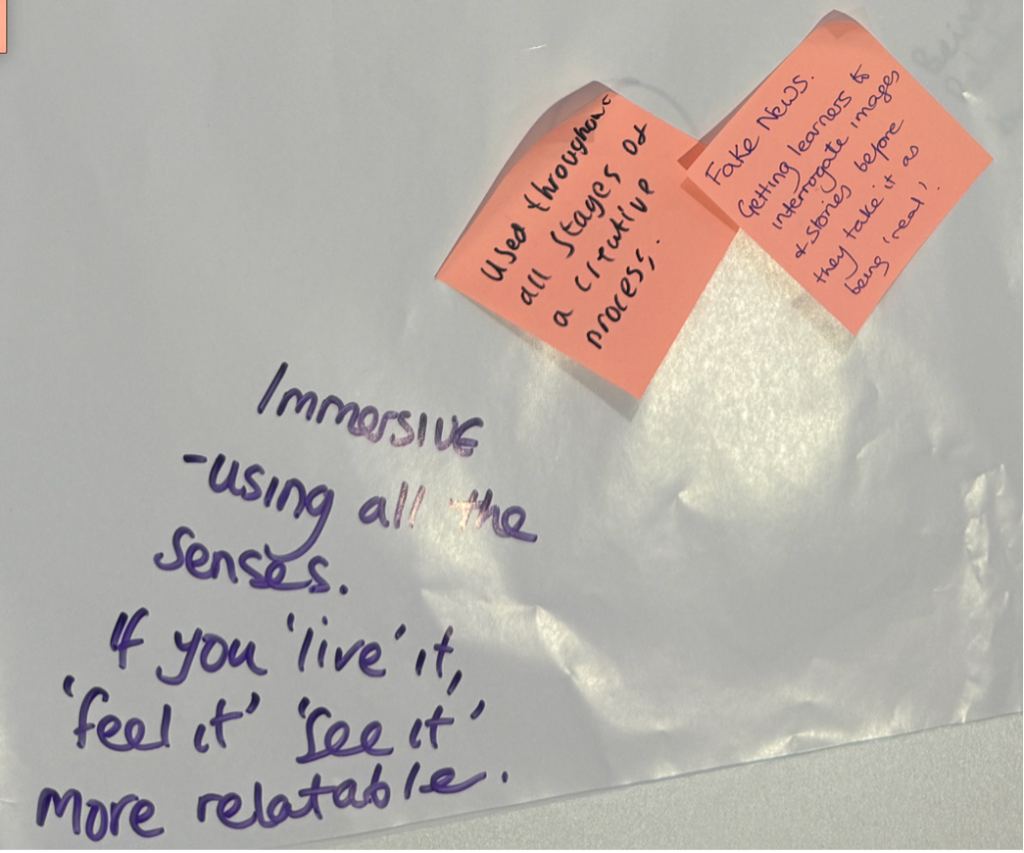 Used throughout
all stages of
a creative
process.
Fake News.
Getting learners to
interrogate images
& stories before
they take it as
being 'real'.
Immersive
-using all the
senses.
If you 'live' it,
'feel it' 'see it'
more relatable.